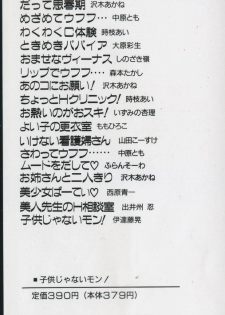 だって思春期 沢木あかね
めざめてウフフ… 中原とも
わくわく口体験 時枝あい
ときめきパパイア 大原彩生
おませなヴィーナス しのざき嶺
リップでウフフ… 森本たかし
あの口にお願い！ 沢木あかね
ちょっとHクリニック！ 時枝あい
お熱いのがおスキ！ いずみの杏理
よい子の更衣室 ももひろこ
いけない看護婦さん 山田こーすけ
さわってウフフ… 中原とも
ムードをだして♡ ふらんそーわ
お姉さんと二人きり 沢木あかね
美少女ぱーてぃ♡ 西原青一
美人先生のH相談室 出井州 忍
子供じゃないモン！ 伊達藤晃
■子供じゃないモン！
定価390円（本体379円）